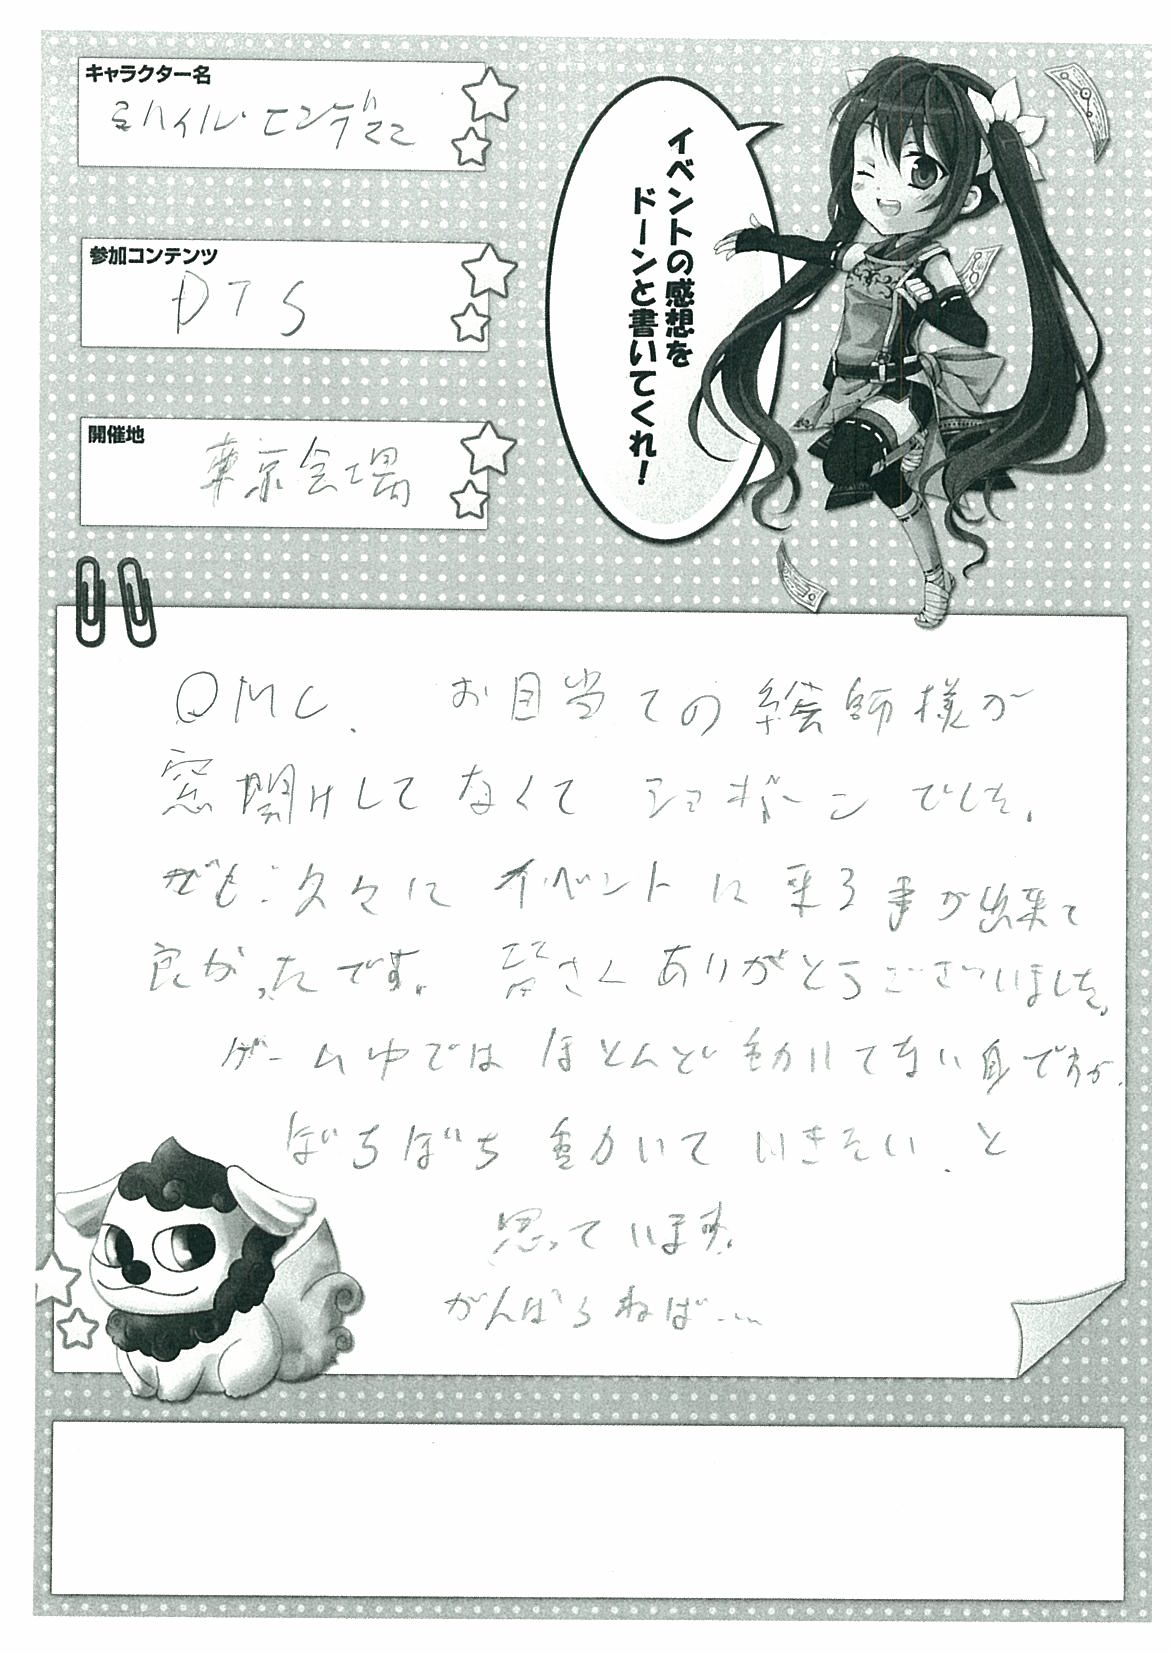 キャラクター名
ミハイル・ヒンデマ
参加コンテンツ
DTS
開催地
東京会場
イベントの感想を
ドーンと書いてくれ!
OMC、お目当ての絵師様が
窓開けしてなくてショボーンでした。
でも、久々にイベントに来る事が出来て
良かったです。皆さんありがとうございました。
ゲーム中ではほとんど動いてない身ですが、
ぼちぼち動かいていきたい、と
思っています。
がんばらねば……